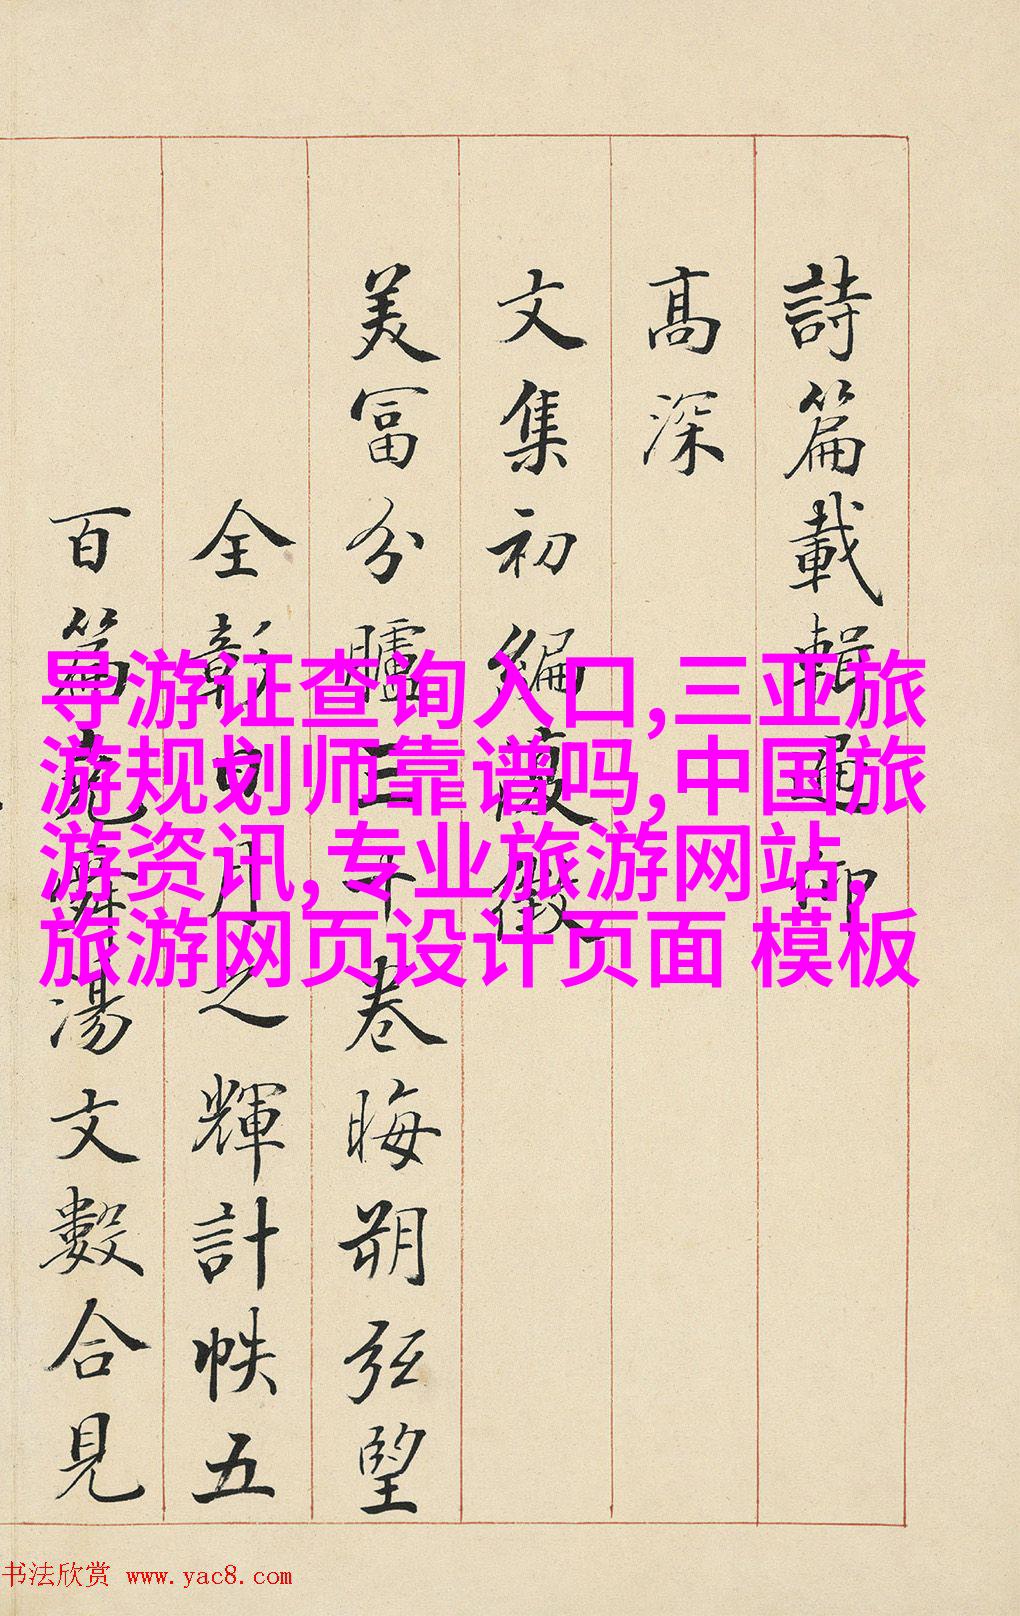 詩篇載輯仰
高深
文集初編徵
美富分臚三十卷晦朔弦望
全彰日月之輝計帙五
百篇堯舜湯文數合見
导游证查询入口,三亚旅
游规划师靠谱吗,中国旅
游资讯,专业旅游网站,
旅游网页设计页面 模板
书法欣赏 www.yac8.com